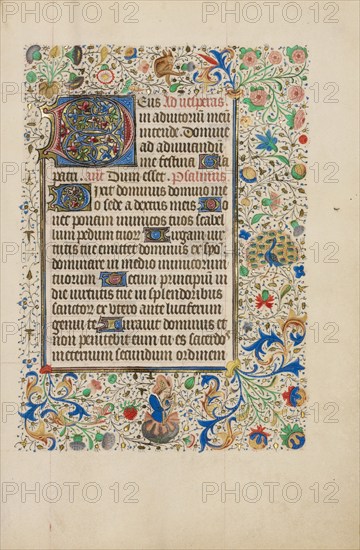 Deus Ad vesperas
in adiutorium meū
intende. Domine
ad adiuvandū
me festina Gla
patri. añt Dum esset. Psalmus
Dixit dominus domino me
o sede a dextris meis Do
nec ponam inimicos tuos scabel
lum pedum tuor Virgam vir
tutis tue emittet dominus ex syō
dominare in medio inimicorum
tuorum Tecum principiū in
die virtutis tue in splendoribus
sanctor ex utero ante luciferum
genui te Juravit dominus et
non penitebit eum tu es sacerdo
ineternum secundum ordinem
PHOTO12